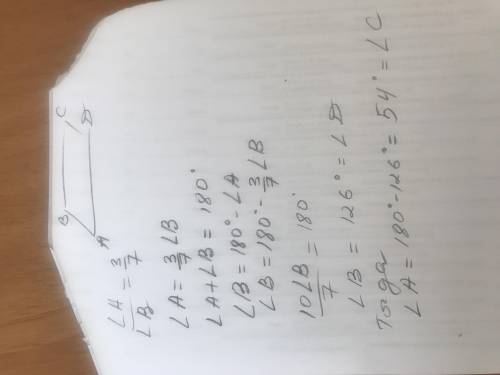 B C
A D
∠A/∠B = 3/7
∠A = 3/7 ∠B
∠A + ∠B = 180°
∠B = 180° - ∠A
∠B = 180° - 3/7 ∠B
10∠B/7 = 180°
∠B = 126° = ∠D
Тогда
∠A = 180° - 126° = 54° = ∠C